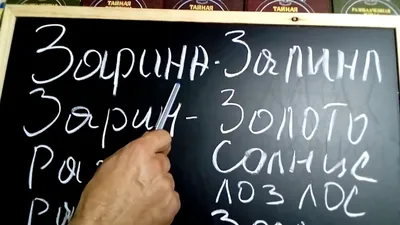 ТАЙНАЯ ТАЙНАЯ
ЗАРИНА - ЗАЛИНА
ЗАРИН - ЗОЛОТО
СОЛНЦЕ
ЛОЗ ЛОС